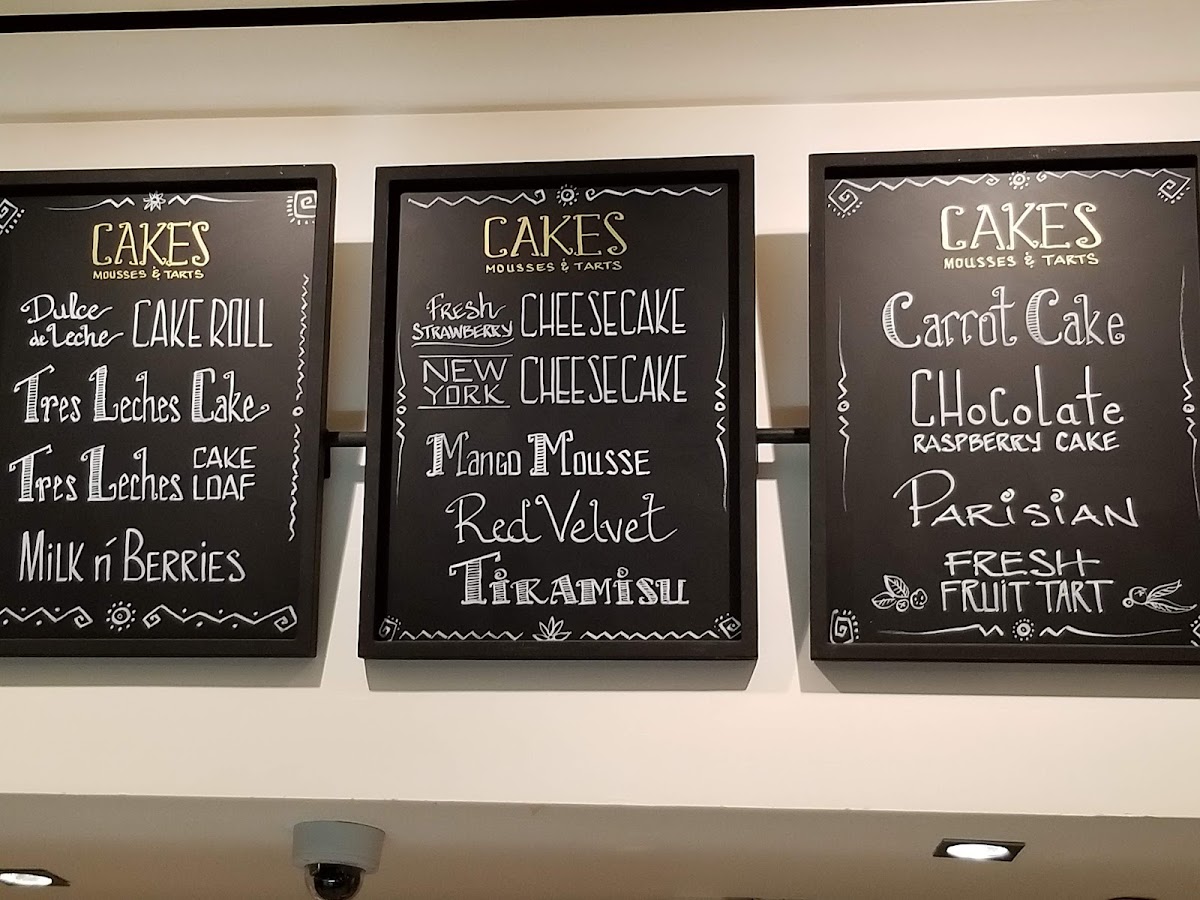 CAKES
MOUSSES & TARTS
Dulce
de Leche CAKE ROLL
Tres Leches Cake
Tres Leches CAKE
LOAF
MILK n' BERRIES
CAKES
MOUSSES & TARTS
FRESH
STRAWBERRY CHEESECAKE
NEW
YORK CHEESECAKE
MANGO MOUSSE
Red Velvet
TIRAMISU
CAKES
MOUSSES & TARTS
Carrot Cake
CHocolate
RASPBERRY CAKE
PARISIAN
FRESH
FRUIT TART